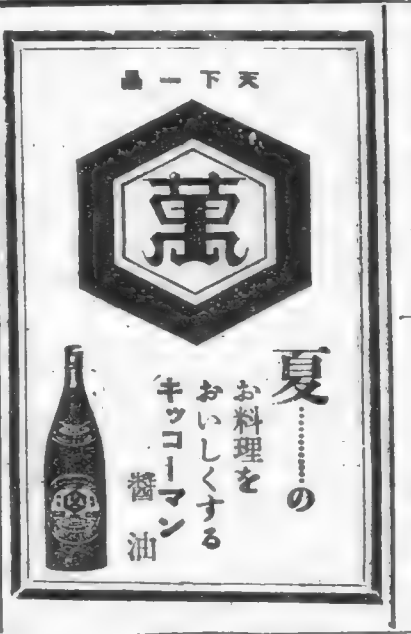 天下一品
萬
夏………の
お料理を
おいしくする
キッコーマン
醬油